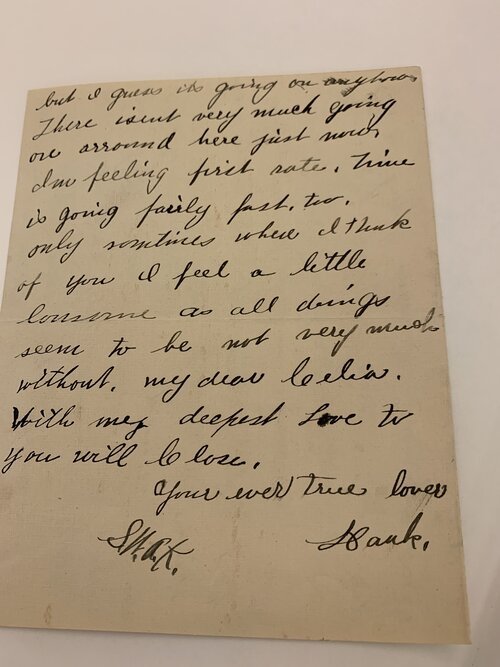 but I guess its going on anyhow
There isent very much going
on arround here just now,
I'm feeling first rate. Time
is going fairly fast, too.
only somtimes when I think
of you I feel a little
lonsome as all things
seem to be not very much
without. my dear Celia.
With my deepest Love to
you will Close.
Your ever true lover
S.W.A.K. Hank.